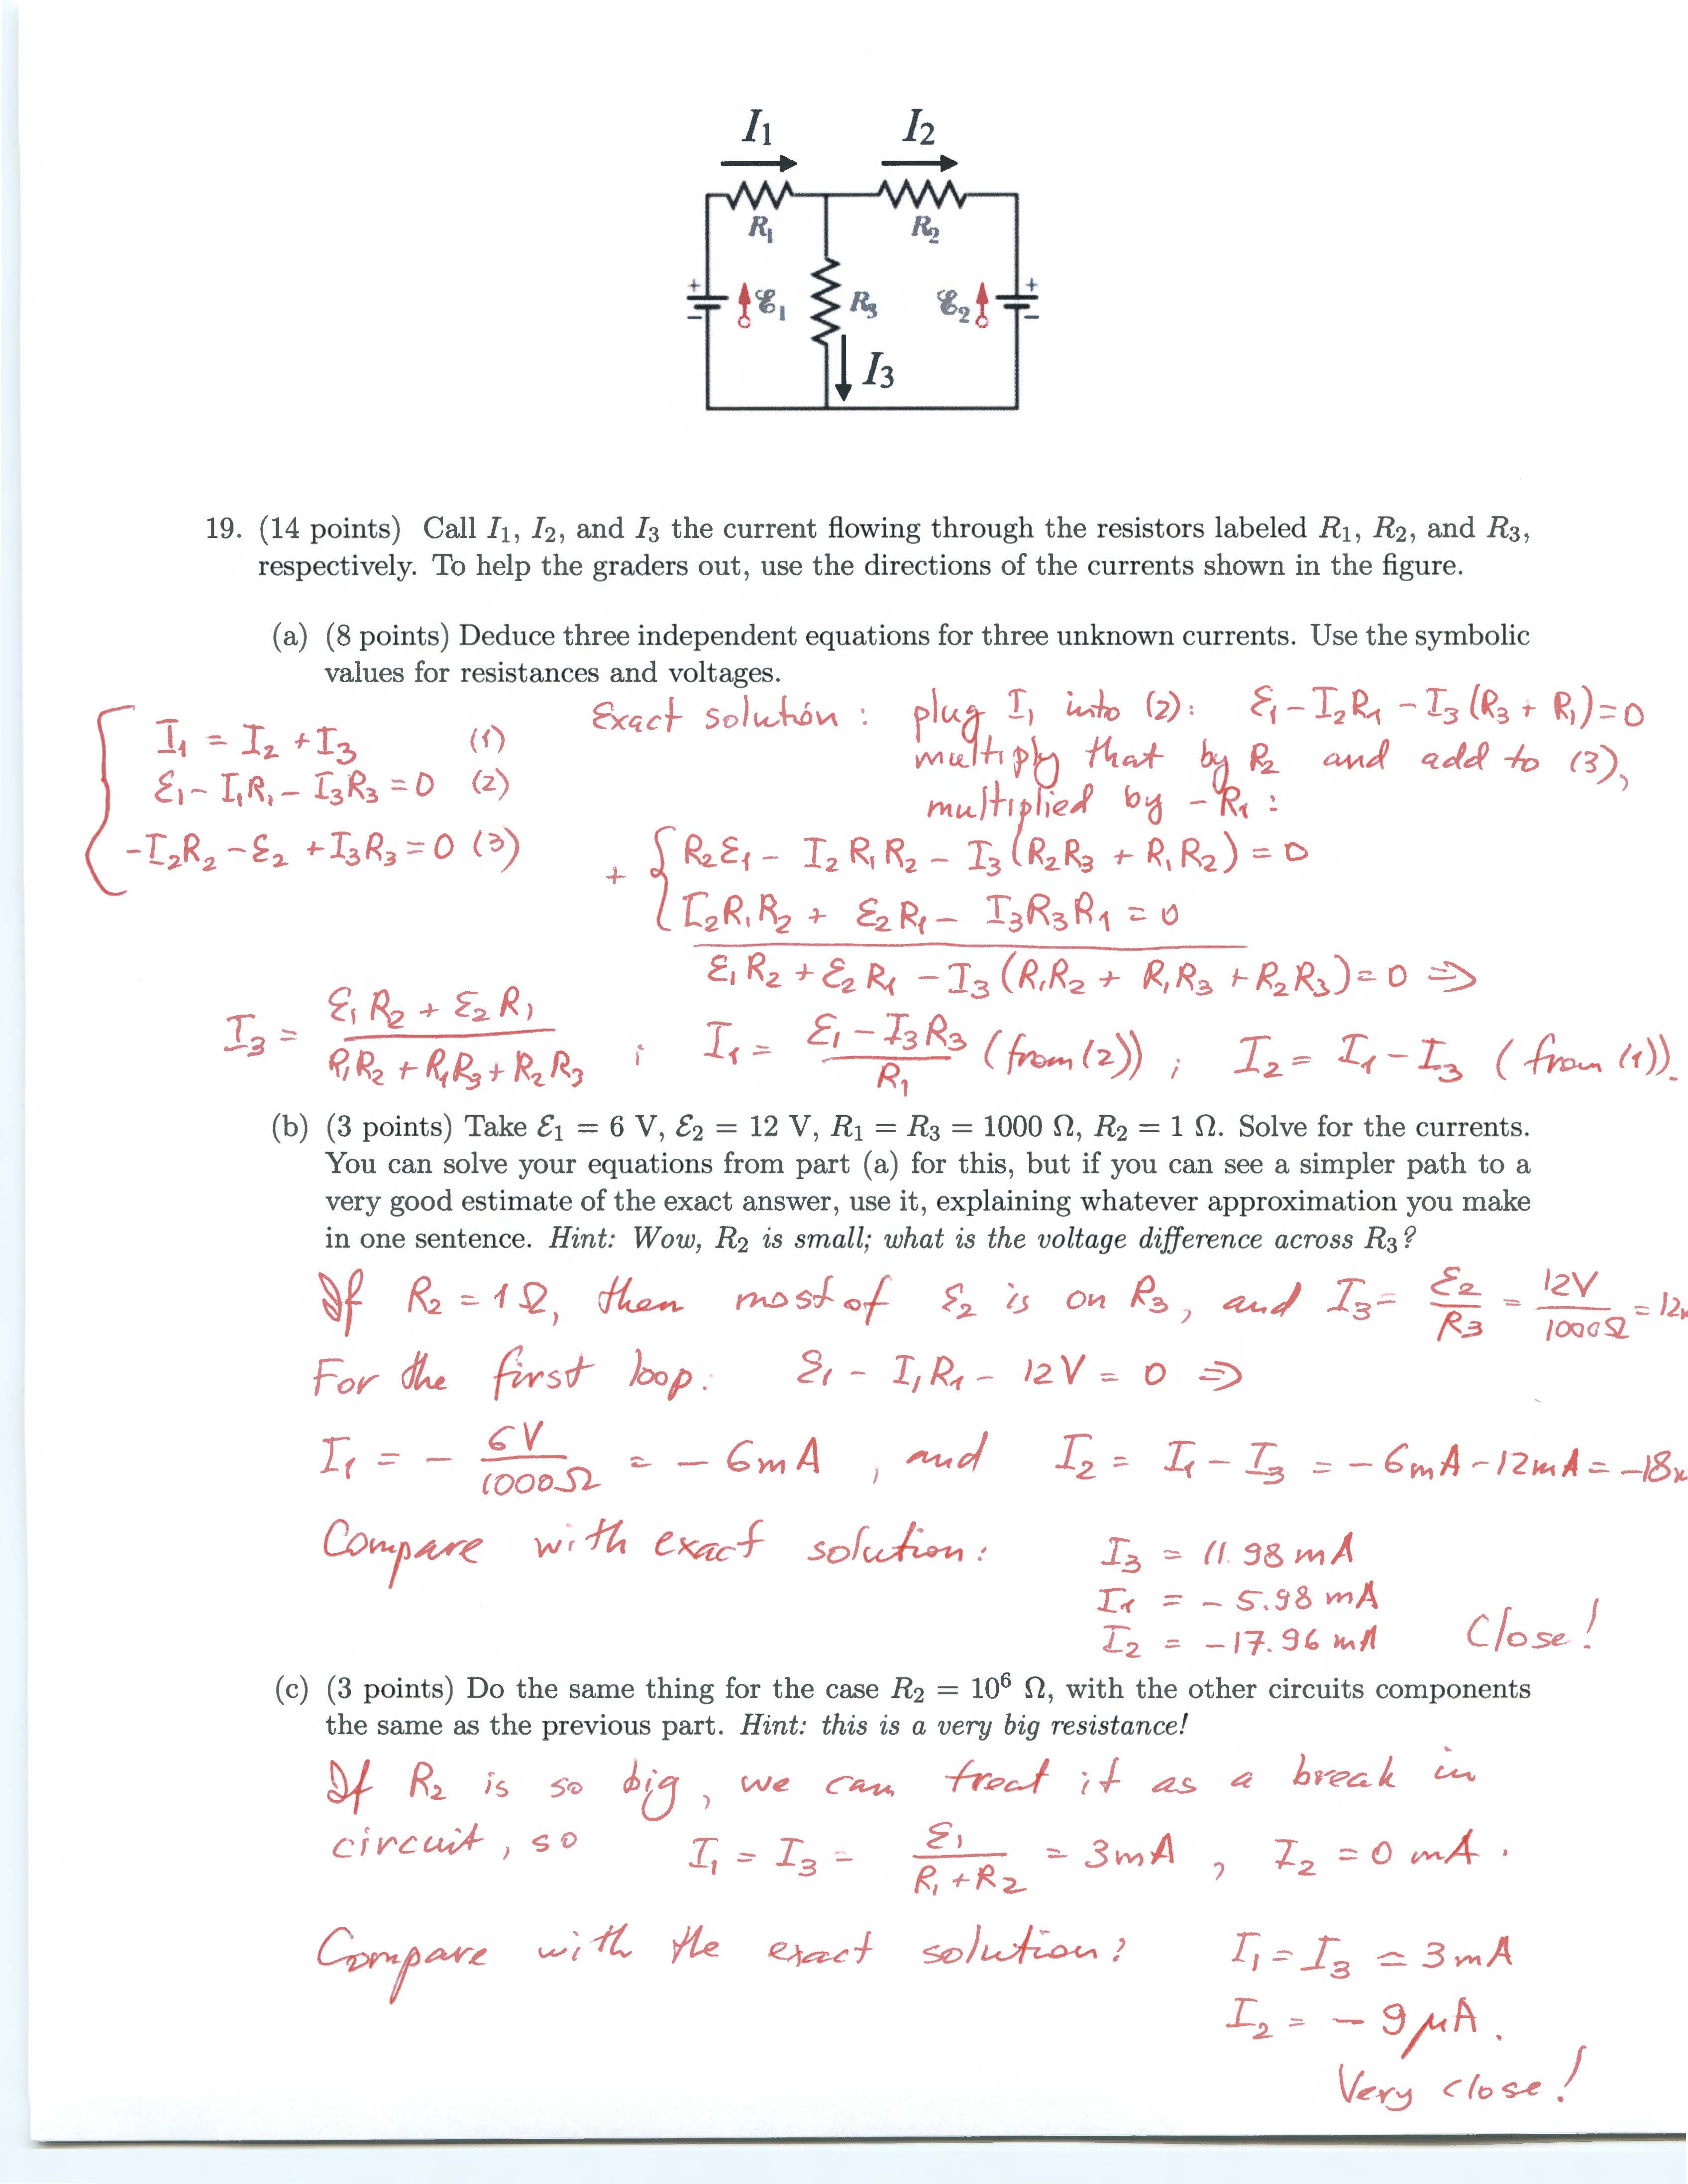 I1 I2
R1 R2
+ ℰ1 R3 ℰ2 +
− −
I3
19. (14 points) Call I1, I2, and I3 the current flowing through the resistors labeled R1, R2, and R3,
respectively. To help the graders out, use the directions of the currents shown in the figure.
(a) (8 points) Deduce three independent equations for three unknown currents. Use the symbolic
values for resistances and voltages.
I1 = I2 + I3 (1)
ℰ1 − I1R1 − I3R3 = 0 (2)
−I2R2 − ℰ2 + I3R3 = 0 (3)
Exact solution: plug I1 into (2): ℰ1 − I2R1 − I3(R3 + R1) = 0
multiply that by R2 and add to (3),
multiplied by −R1:
+ { R2ℰ1 − I2R1R2 − I3(R2R3 + R1R2) = 0
I2R1R2 + ℰ2R1 − I3R3R1 = 0
ℰ1R2 + ℰ2R1 − I3(R1R2 + R1R3 + R2R3) = 0 ⇒
I3 = (ℰ1R2 + ℰ2R1) / (R1R2 + R1R3 + R2R3) ; I1 = (ℰ1 − I3R3) / R1 (from (2)) ; I2 = I1 − I3 (from (1)).
(b) (3 points) Take ℰ1 = 6 V, ℰ2 = 12 V, R1 = R3 = 1000 Ω, R2 = 1 Ω. Solve for the currents.
You can solve your equations from part (a) for this, but if you can see a simpler path to a
very good estimate of the exact answer, use it, explaining whatever approximation you make
in one sentence. Hint: Wow, R2 is small; what is the voltage difference across R3?
If R2 = 1Ω, then most of ℰ2 is on R3, and I3 = ℰ2 / R3 = 12V / 1000Ω = 12
For the first loop: ℰ1 − I1R1 − 12V = 0 ⇒
I1 = − 6V / 1000Ω = − 6mA , and I2 = I1 − I3 = −6mA − 12mA = −18
Compare with exact solution: I3 = 11.98 mA
I1 = − 5.98 mA
I2 = −17.96 mA Close!
(c) (3 points) Do the same thing for the case R2 = 10⁶ Ω, with the other circuits components
the same as the previous part. Hint: this is a very big resistance!
If R2 is so big, we can treat it as a break in
circuit, so I1 = I3 = ℰ1 / (R1 + R2) = 3mA , I2 = 0 mA.
Compare with the exact solution: I1 = I3 = 3mA
I2 = − 9 μA.
Very close!